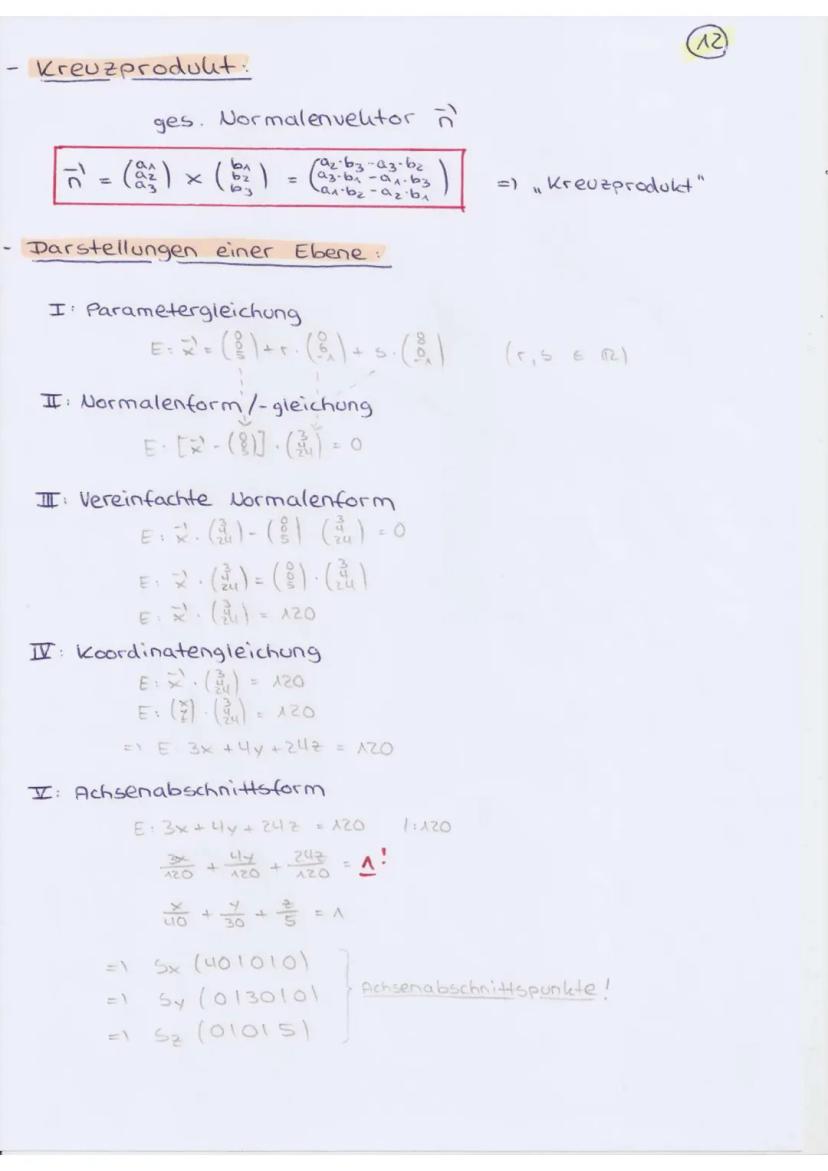 12
- Kreuzprodukt:
ges. Normalenvektor n⃗
n⃗ = (a₁ a₂ a₃) × (b₁ b₂ b₃) = (a₂·b₃-a₃·b₂ a₃·b₁-a₁·b₃ a₁·b₂-a₂·b₁) => „Kreuzprodukt"
- Darstellungen einer Ebene:
I: Parametergleichung
E: x⃗ = (0 0 5) + r · (0 6 -1) + s · (8 0 -1) (r, s ∈ ℝ)
II: Normalenform/-gleichung
E: [x⃗ - (0 0 5)] · (3 4 24) = 0
III: Vereinfachte Normalenform
E: x⃗ · (3 4 24) - (0 0 5) (3 4 24) = 0
E: x⃗ · (3 4 24) = (0 0 5) · (3 4 24)
E: x⃗ · (3 4 24) = 120
IV: Koordinatengleichung
E: x⃗ · (3 4 24) = 120
E: (x y z) · (3 4 24) = 120
=> E: 3x + 4y + 24z = 120
V: Achsenabschnittsform
E: 3x + 4y + 24z = 120 /:120
3x/120 + 4y/120 + 24z/120 = 1!
x/40 + y/30 + z/5 = 1
=> Sx (40|0|0)
=> Sy (0|30|0) Achsenabschnittspunkte!
=> Sz (0|0|5)